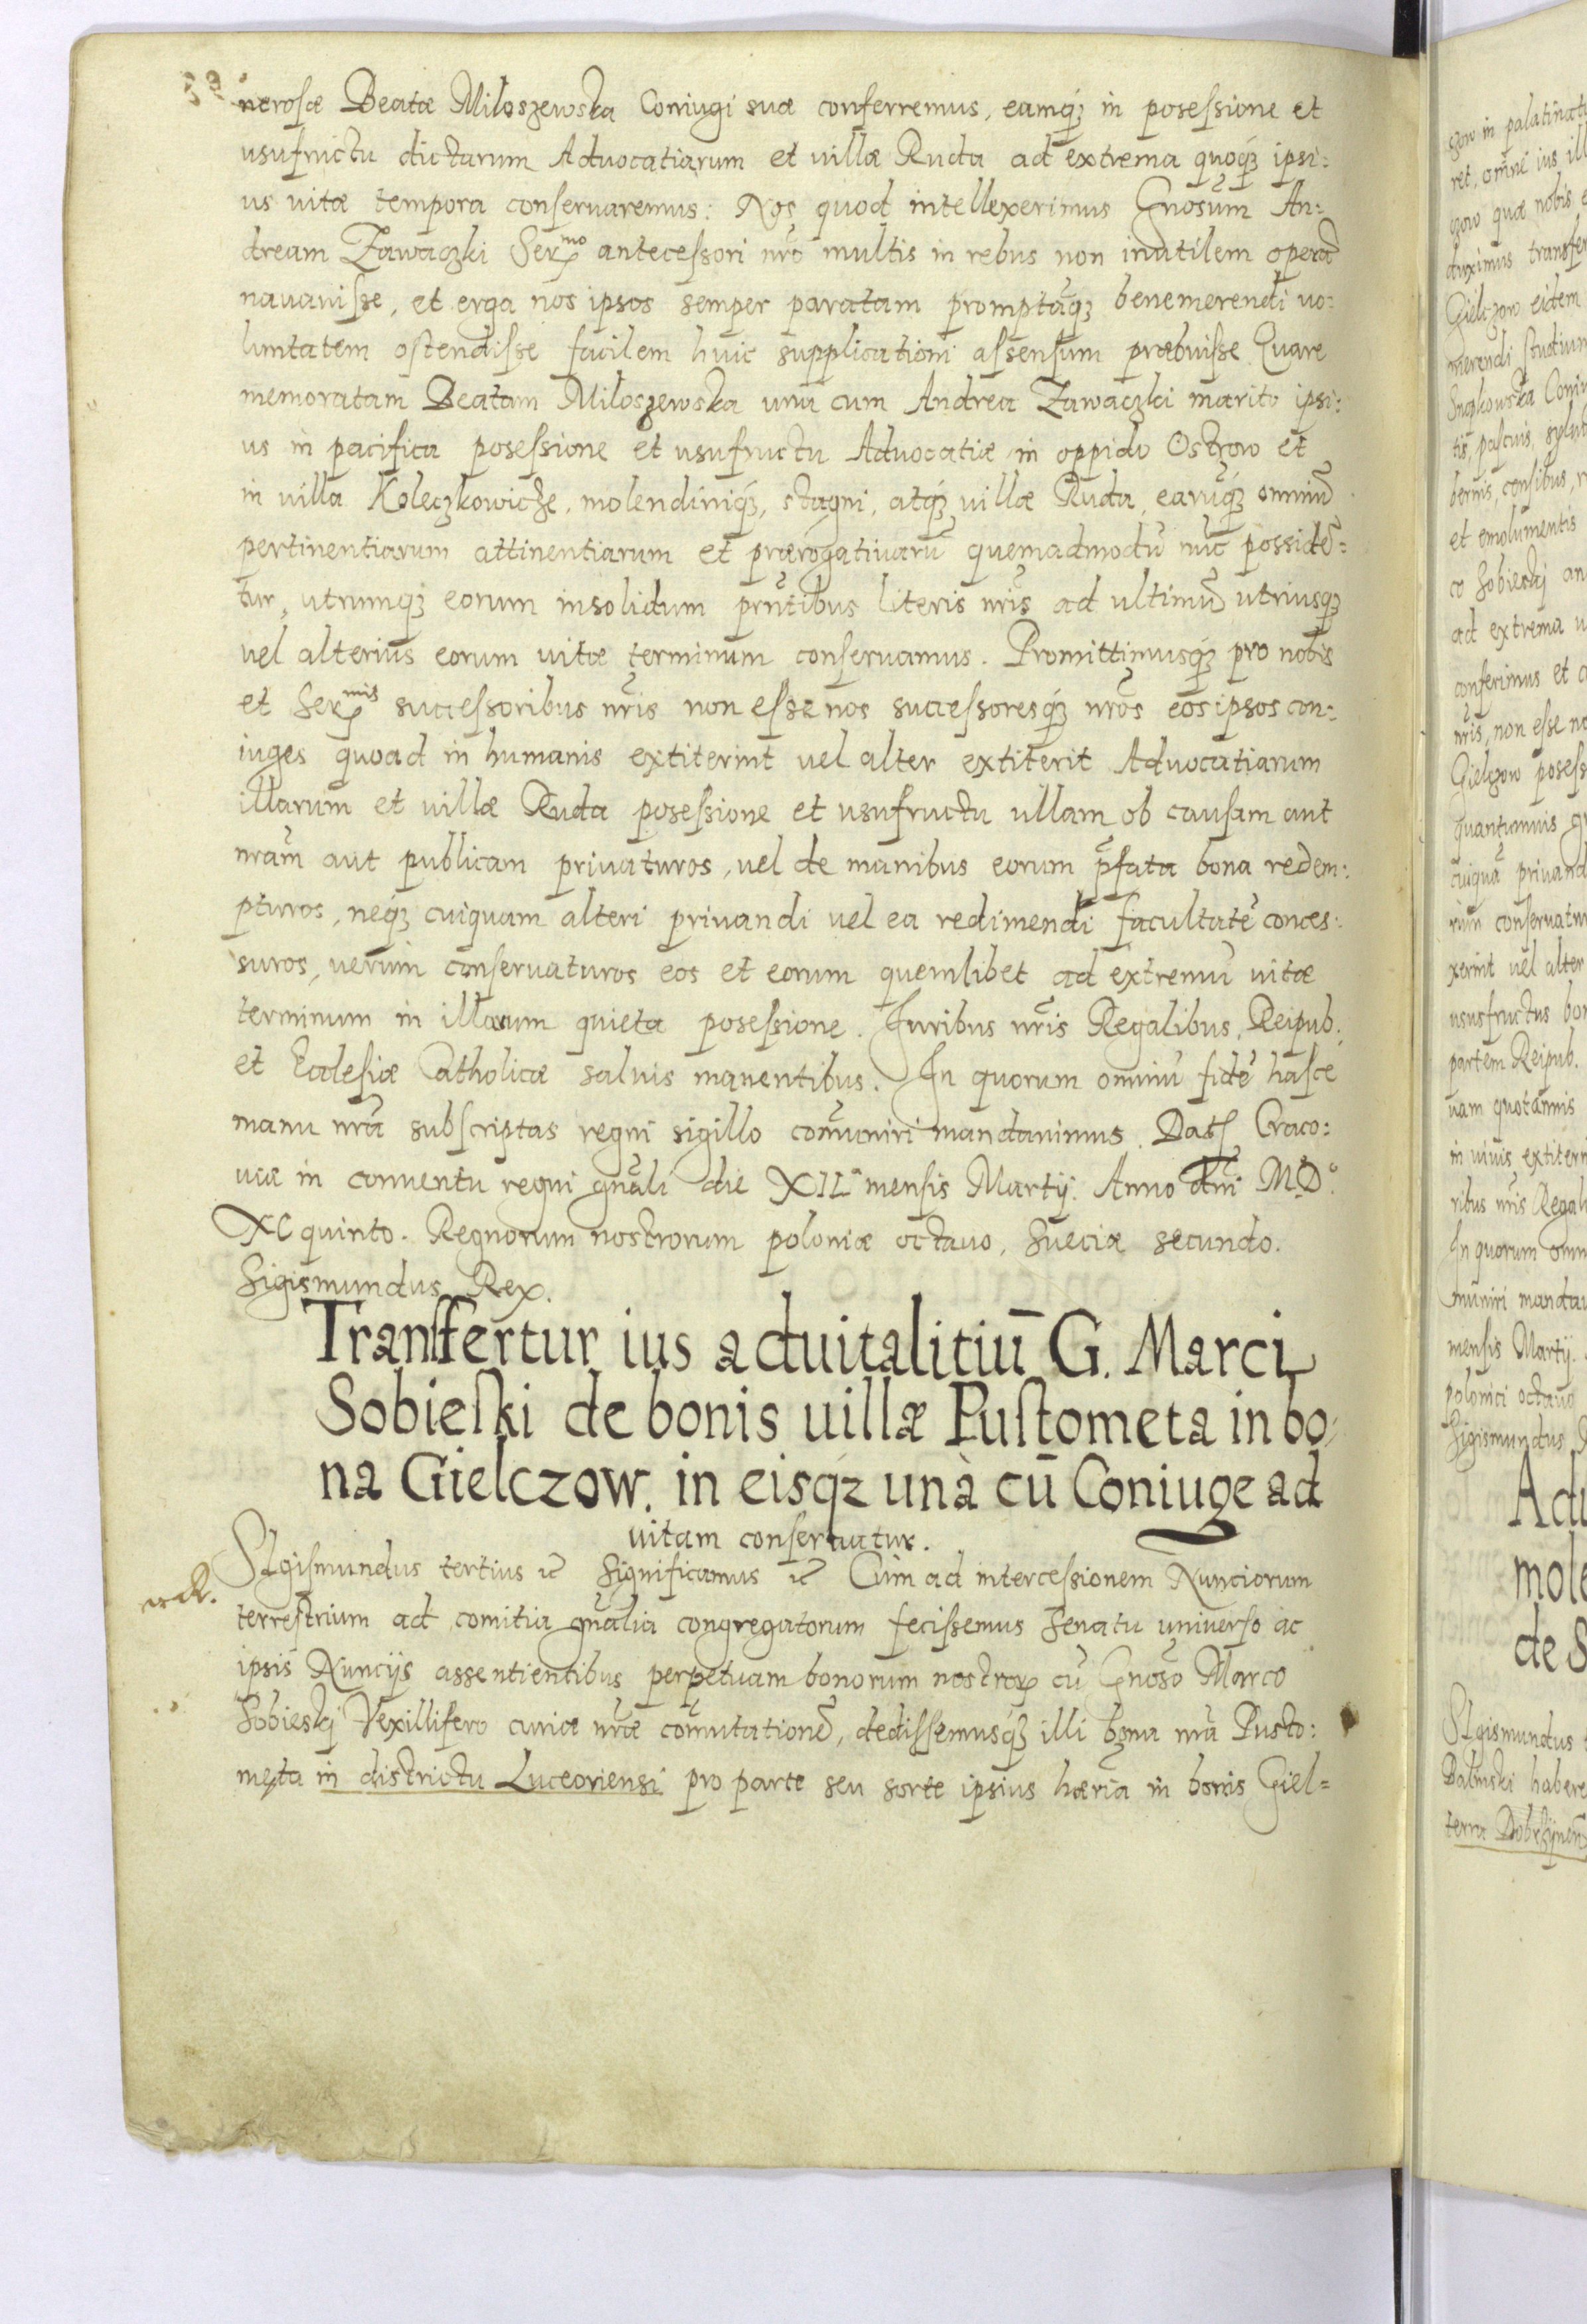 nerosæ Beatæ Miloszewska Coniugi suæ conferremus, eamq́ꝫ in posessione et
usufructu dictarum Advocatiarum et villæ Ruda ad extrema quoq́ꝫ ipsi:
us vitæ tempora conservaremus: Nos quod intellexerimus Gnosũm An:
dream Zawaczki Serᵐᵒ antecessori nrõ multis in rebus non inutilem operã
navavisse, et erga nos ipsos semper paratam promptãq́ꝫ benemerendi vo:
luntatem ostendisse facilem huic supplicationi assensum præbuisse Quare
memoratam Beatam Miloszewska una cum Andrea Zawaczki marito ipsi:
us in pacifica posessione et usufructu Advocatiæ in oppido Ostrow et
in villa Koleczkowicze, molendiniq́ꝫ, stagni, atq́ꝫ villæ Ruda, earũq́ꝫ omniũ
pertinentiarum attinentiarum et prærogativarũ quemadmodũ nũc possidẽ:
tur, utrumq́ꝫ eorum insolidum prñtibus literis nr̃is ad ultimũ utriusq́ꝫ
vel alterius eorum vitæ terminum conservamus. Promittimusq́ꝫ pro nobis
et Serᵐⁱˢ successoribus nr̃is non esse nos successoresq́ꝫ nrõs eos ipsos con:
iuges quoad in humanis extiterint vel alter extiterit Advocatiarum
illarum et villæ Ruda posessione et usufructu ullam ob causam aut
nrãm aut publicam privaturos, vel de manibus eorum p̃fata bona redem:
pturos, neq́ꝫ cuiquam alteri privandi vel ea redimendi facultatẽ conces:
suros, verum conservaturos eos et eorum quemlibet ad extremũ vitæ
terminum in illarum quieta posessione. Iuribus nr̃is Regalibus, Reipub.
et Ecclesiæ Catholicæ salvis manentibus. In quorum omniũ fidẽ hasce
manu nrã subscriptas regni sigillo com̃uniri mandavimus. Dat Craco:
viæ in conventu regni gnãli die XII mensis Martij. Anno dñi M.D.
XC quinto. Regnorum nostrorum poloniæ octavo, Sueciæ secundo.
Sigismundus Rex.
Transfertur ius advitalitiũ G. Marci
Sobieski de bonis villæ Pustometa in bo
na Gielczow. in eisq́ꝫ unà cũ Coniuge ad
vitam conservatur.
SIgismundus tertius etc Significamus etc Cùm ad intercessionem Nunciorum
terrestrium ad comitia gnãlia congregatorum fecissemus Senatu universo ac
ipsis Nuncijs assentientibus perpetuam bonorum nostroꝝ cũ Gnosõ Marco
Sobieskj Vexillifero curiæ nrãæ com̃utationẽ, dedissemusq́ꝫ illi bona nrã Pusto:
meta in districtu Luceoriensi pro parte seu sorte ipsius hæriã in bonis Giel=